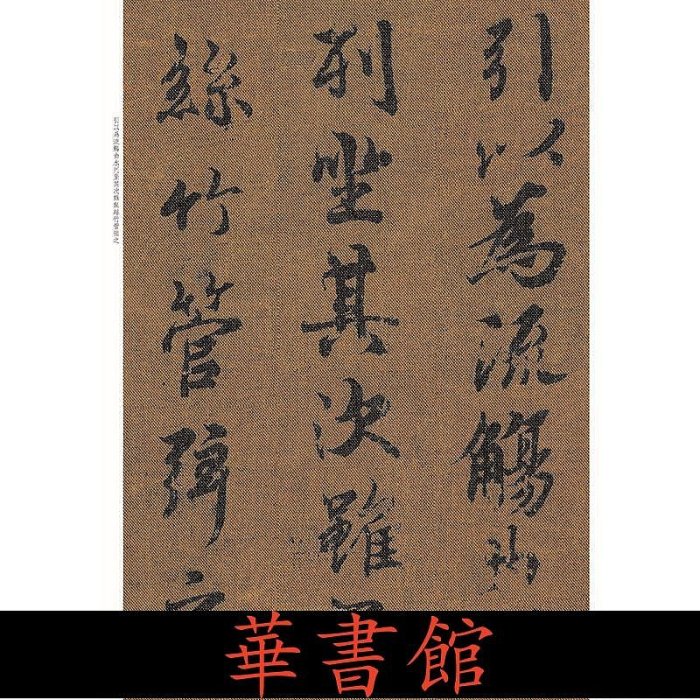 引以為流觴曲
列坐其次雖
絲竹管弦
引以為流觴曲水列坐其次雖無絲竹管弦之
華書館